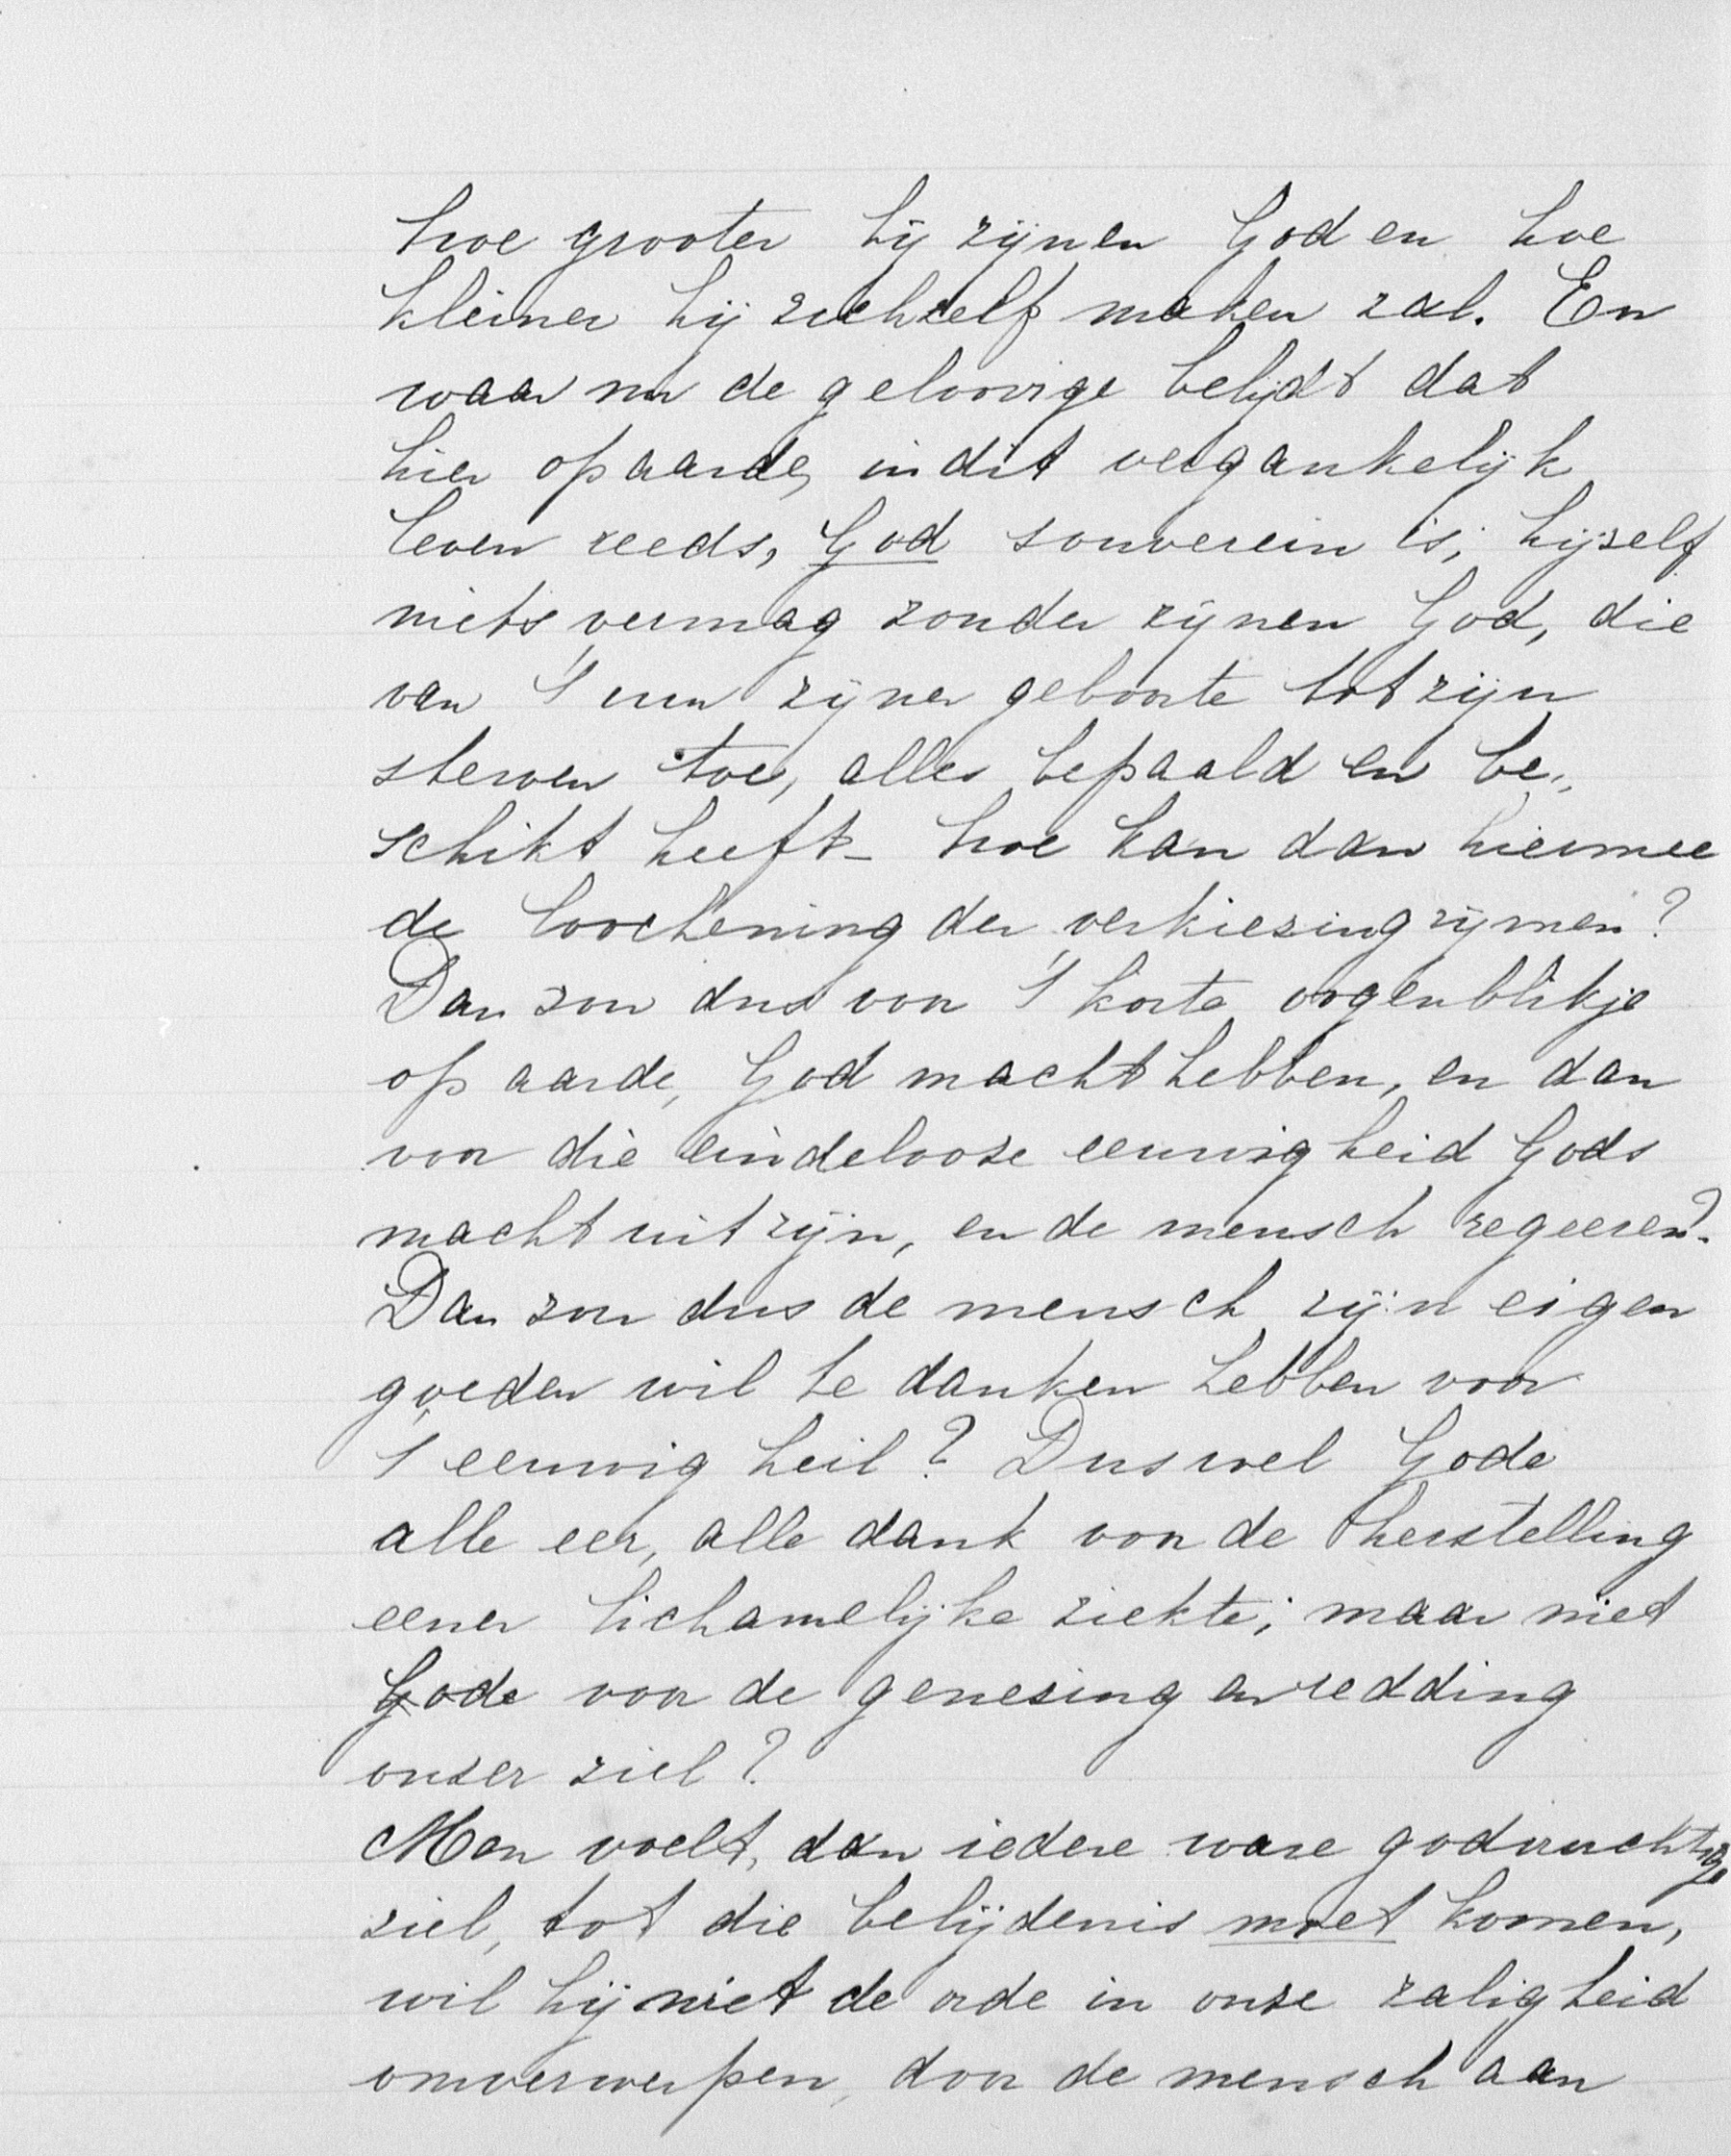 hoe grooter hij zijnen God en hoe
kleiner hij zichzelf maken zal. En
waar nu de geloovige belijdt dat
hier op aarde, in dit vergankelijk
leven reeds, God souverein is; hijzelf
niets vermag zonder zijnen God, die
van 't uur zijner geboorte tot zijn
sterven toe, alles bepaald en be„
schikt heeft - hoe kan dan hiermee
de loochening der verkiezing rijmen?
Dan zou dus voor 't korte oogenblikje
op aarde, God macht hebben, en dan
voor die eindeloose eeuwigheid Gods
macht uit zijn, en de mensch regeeren?
Dan zou dus de mensch zijn eigen
goeden wil te danken hebben voor
't eeuwig heil? Dus wel Gode
alle eer, alle dank voor de herstelling
eener lichamelijke ziekte; maar niet
Gode voor de genezing en redding
onzer ziel?
Men voelt, dan iedere ware godvruchtige
ziel, tot die belijdenis moet komen,
wil hij niet de orde in onze zaligheid
omverwerpen, door de mensch aan